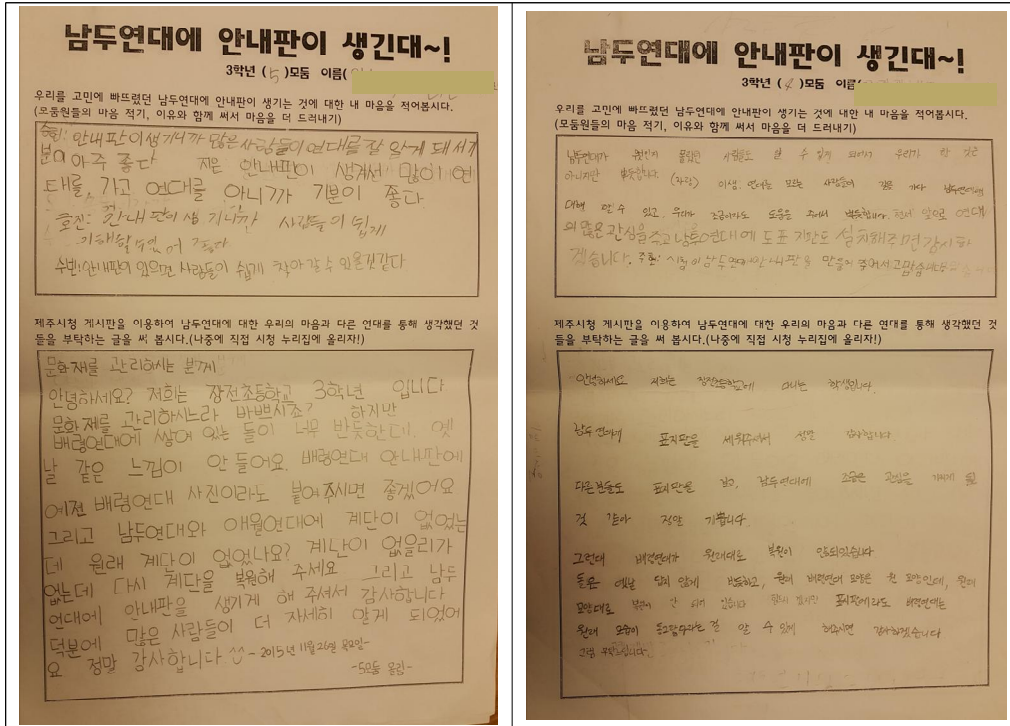 남두연대에 안내판이 생긴대~!
3학년 (5)모둠 이름(
우리를 고민에 빠뜨렸던 남두연대에 안내판이 생기는 것에 대한 내 마음을 적어봅시다.
(모둠원들의 마음 적기, 이유와 함께 써서 마음을 더 드러내기)
안내판이 생기니까 많은 사람들이 연대를 잘 알게 돼서 기
분이 아주 좋다 지은 안내판이 생겨서 많이 연
대를 가고 연대를 아니까 기분이 좋다
호진: 안내판이 생기니깐 사람들이 쉽게
기억할 수 있어 좋다
수빈: 안내판이 있으면 사람들이 쉽게 찾아갈 수 있을것같다
제주시청 게시판을 이용하여 남두연대에 대한 우리의 마음과 다른 연대를 통해 생각했던 것
들을 부탁하는 글을 써 봅시다.(나중에 직접 시청 누리집에 올리자!)
문화재를 관리하시는 분께
안녕하세요? 저희는 장전초등학교 3학년 입니다
문화재를 관리하시느라 바쁘시죠? 하지만
배령연대에 쌓여 있는 돌이 너무 반듯한데. 옛
날 같은 느낌이 안 들어요. 배령연대 안내판에
예전 배령연대 사진이라도 붙여주시면 좋겠어요
그리고 남두연대와 애월연대에 계단이 없었는
데 원래 계단이 없었나요? 계단이 없을리가
없는데 다시 계단을 복원해 주세요 그리고 남두
연대에 안내판을 생기게 해 주셔서 감사합니다
덕분에 많은 사람들이 더 자세히 알게 되었어
요 정말 감사합니다 -2015년 11월 26일 목요일-
-5모둠 올림-
남두연대에 안내판이 생긴대~!
3학년 (4)모둠 이름(
우리를 고민에 빠뜨렸던 남두연대에 안내판이 생기는 것에 대한 내 마음을 적어봅시다.
(모둠원들의 마음 적기, 이유와 함께 써서 마음을 더 드러내기)
남두연대가 뭔지 몰랐던 사람들도 알 수 있게 되어서 우리가 한 것은
아니지만 뿌듯합니다. 연대를 모르는 사람들이 길을 가다 남두연대에
대해 알 수 있고. 우리가 조금이라도 도움을 주어서 뿌듯합니다. 앞으로 연대
의 많은 관심을 주고 남두연대에 도표지판도 설치해주면 감사하
겠습니다. 시청이 남두연대 안내판을 만들어 주어서 고맙습니다
제주시청 게시판을 이용하여 남두연대에 대한 우리의 마음과 다른 연대를 통해 생각했던 것
들을 부탁하는 글을 써 봅시다.(나중에 직접 시청 누리집에 올리자!)
안녕하세요 저희는 장전초등학교에 다니는 학생입니다.
남두연대에 표지판을 세워주셔서 정말 감사합니다.
다른분들도 표지판을 보고, 남두연대에 조금은 관심을 가지게 될
것 같아 정말 기쁩니다.
그런데 배령연대가 원래대로 복원이 안되있습니다
돌은 옛날 답지 않게 반듯하고, 원래 배령연대 모양은 원 모양인데, 원래
모양대로 복원이 안 되어 있습니다 표지판에라도 배령연대는
원래 모습이 동그랗다라는 걸 알 수 있게 해주시면 감사하겠습니다
그럼 부탁드립니다.